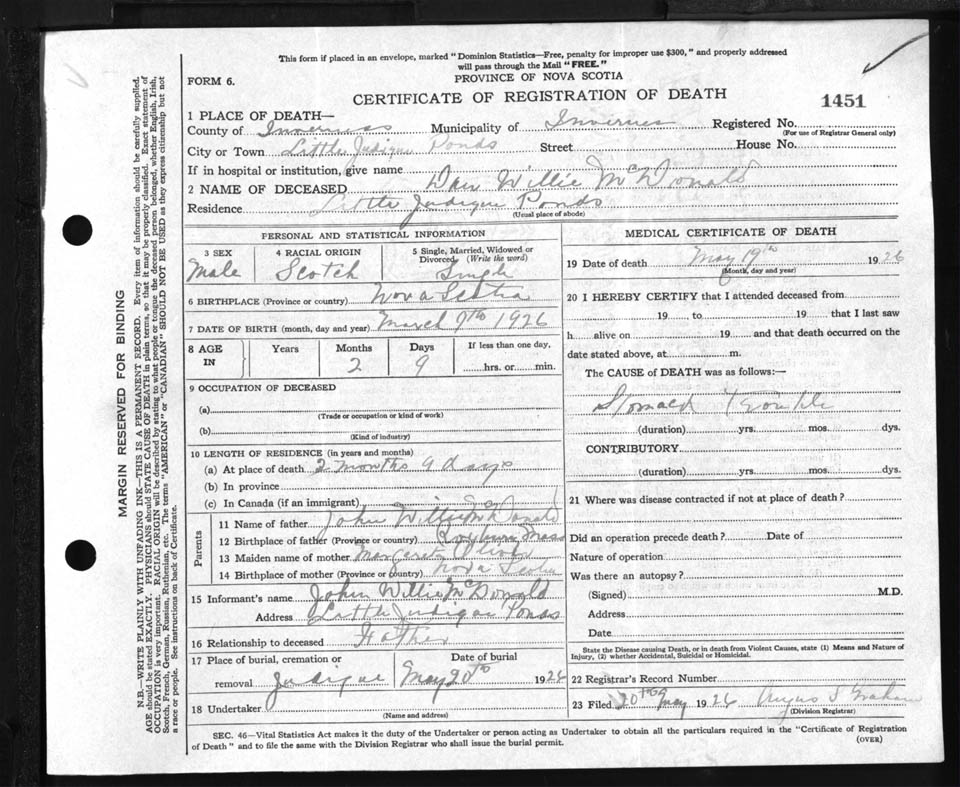 This form if placed in an envelope, marked "Dominion Statistics—Free, penalty for improper use $300," and properly addressed
will pass through the Mail "FREE."
FORM 6.
PROVINCE OF NOVA SCOTIA
CERTIFICATE OF REGISTRATION OF DEATH
1451
1 PLACE OF DEATH—
County of Inverness Municipality of Inverness Registered No.
(For use of Registrar General only)
City or Town Little Judique Ponds Street House No.
If in hospital or institution, give name
2 NAME OF DECEASED Dan Willie McDonald
Residence Little Judique Ponds
(Usual place of abode)
PERSONAL AND STATISTICAL INFORMATION
3 SEX 4 RACIAL ORIGIN 5 Single, Married, Widowed or
Divorced (Write the word)
Male Scotch Single
6 BIRTHPLACE (Province or country) Nova Scotia
7 DATE OF BIRTH (month, day and year) March 9th 1926
8 AGE IN Years Months Days If less than one day,
2 9 hrs. or min.
9 OCCUPATION OF DECEASED
(a)
(Trade or occupation or kind of work)
(b)
(Kind of industry)
10 LENGTH OF RESIDENCE (in years and months)
(a) At place of death 2 months 9 days
(b) In province
(c) In Canada (if an immigrant)
Parents
11 Name of father John Willie McDonald
12 Birthplace of father (Province or country) Roxbury Mass
13 Maiden name of mother Margaret
14 Birthplace of mother (Province or country) Nova Scotia
15 Informant's name John Willie McDonald
Address Little Judique Ponds
16 Relationship to deceased Father
17 Place of burial, cremation or Date of burial
removal Judique May 20th 1926
18 Undertaker
(Name and address)
MEDICAL CERTIFICATE OF DEATH
19 Date of death May 19th 1926
(Month, day and year)
20 I HEREBY CERTIFY that I attended deceased from
19 to 19 that I last saw
h alive on 19 and that death occurred on the
date stated above, at m.
The CAUSE of DEATH was as follows:—
(duration) yrs. mos. dys.
CONTRIBUTORY
(duration) yrs. mos. dys.
21 Where was disease contracted if not at place of death?
Did an operation precede death? Date of
Nature of operation
Was there an autopsy?
(Signed) M.D.
Address
Date
State the Disease causing Death, or in death from Violent Causes, state (1) Means and Nature of
Injury, (2) whether Accidental, Suicidal or Homicidal.
22 Registrar's Record Number
23 Filed 20th May 1926 Angus S Graham
(Division Registrar)
SEC. 46—Vital Statistics Act makes it the duty of the Undertaker or person acting as Undertaker to obtain all the particulars required in the "Certificate of Registration
of Death" and to file the same with the Division Registrar who shall issue the burial permit.
(OVER)
MARGIN RESERVED FOR BINDING
N.B.—WRITE PLAINLY WITH UNFADING INK—THIS IS A PERMANENT RECORD. Every item of information should be carefully supplied.
AGE should be stated EXACTLY. PHYSICIANS should STATE CAUSE OF DEATH in plain terms, so that it may be properly classified. Exact statement of
OCCUPATION is very important. RACIAL ORIGIN will be described by stating to what people or tongue the deceased person belonged, whether English, Irish,
Scotch, French, German, Russian, Ruthenian, etc. The terms "AMERICAN" or "CANADIAN" SHOULD NOT BE USED as they express citizenship but not
a race or people. See instructions on back of Certificate.